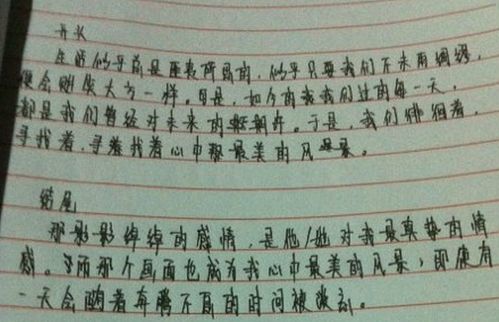 开头
生活似乎前是
似乎只要我们不未雨绸缪,
便会 一样。但是,如今的我我们过的每一天,
都是我们曾经对未来的 期许。于是,我们徘徊着,
寻找着,寻 找着心中 最美的风景。
结尾
那影影绰绰的感情,是他/她对我最真挚的情
感。而那个画面也成为我心中最美的风景,即使有
一天会随着奔腾不息的时间被